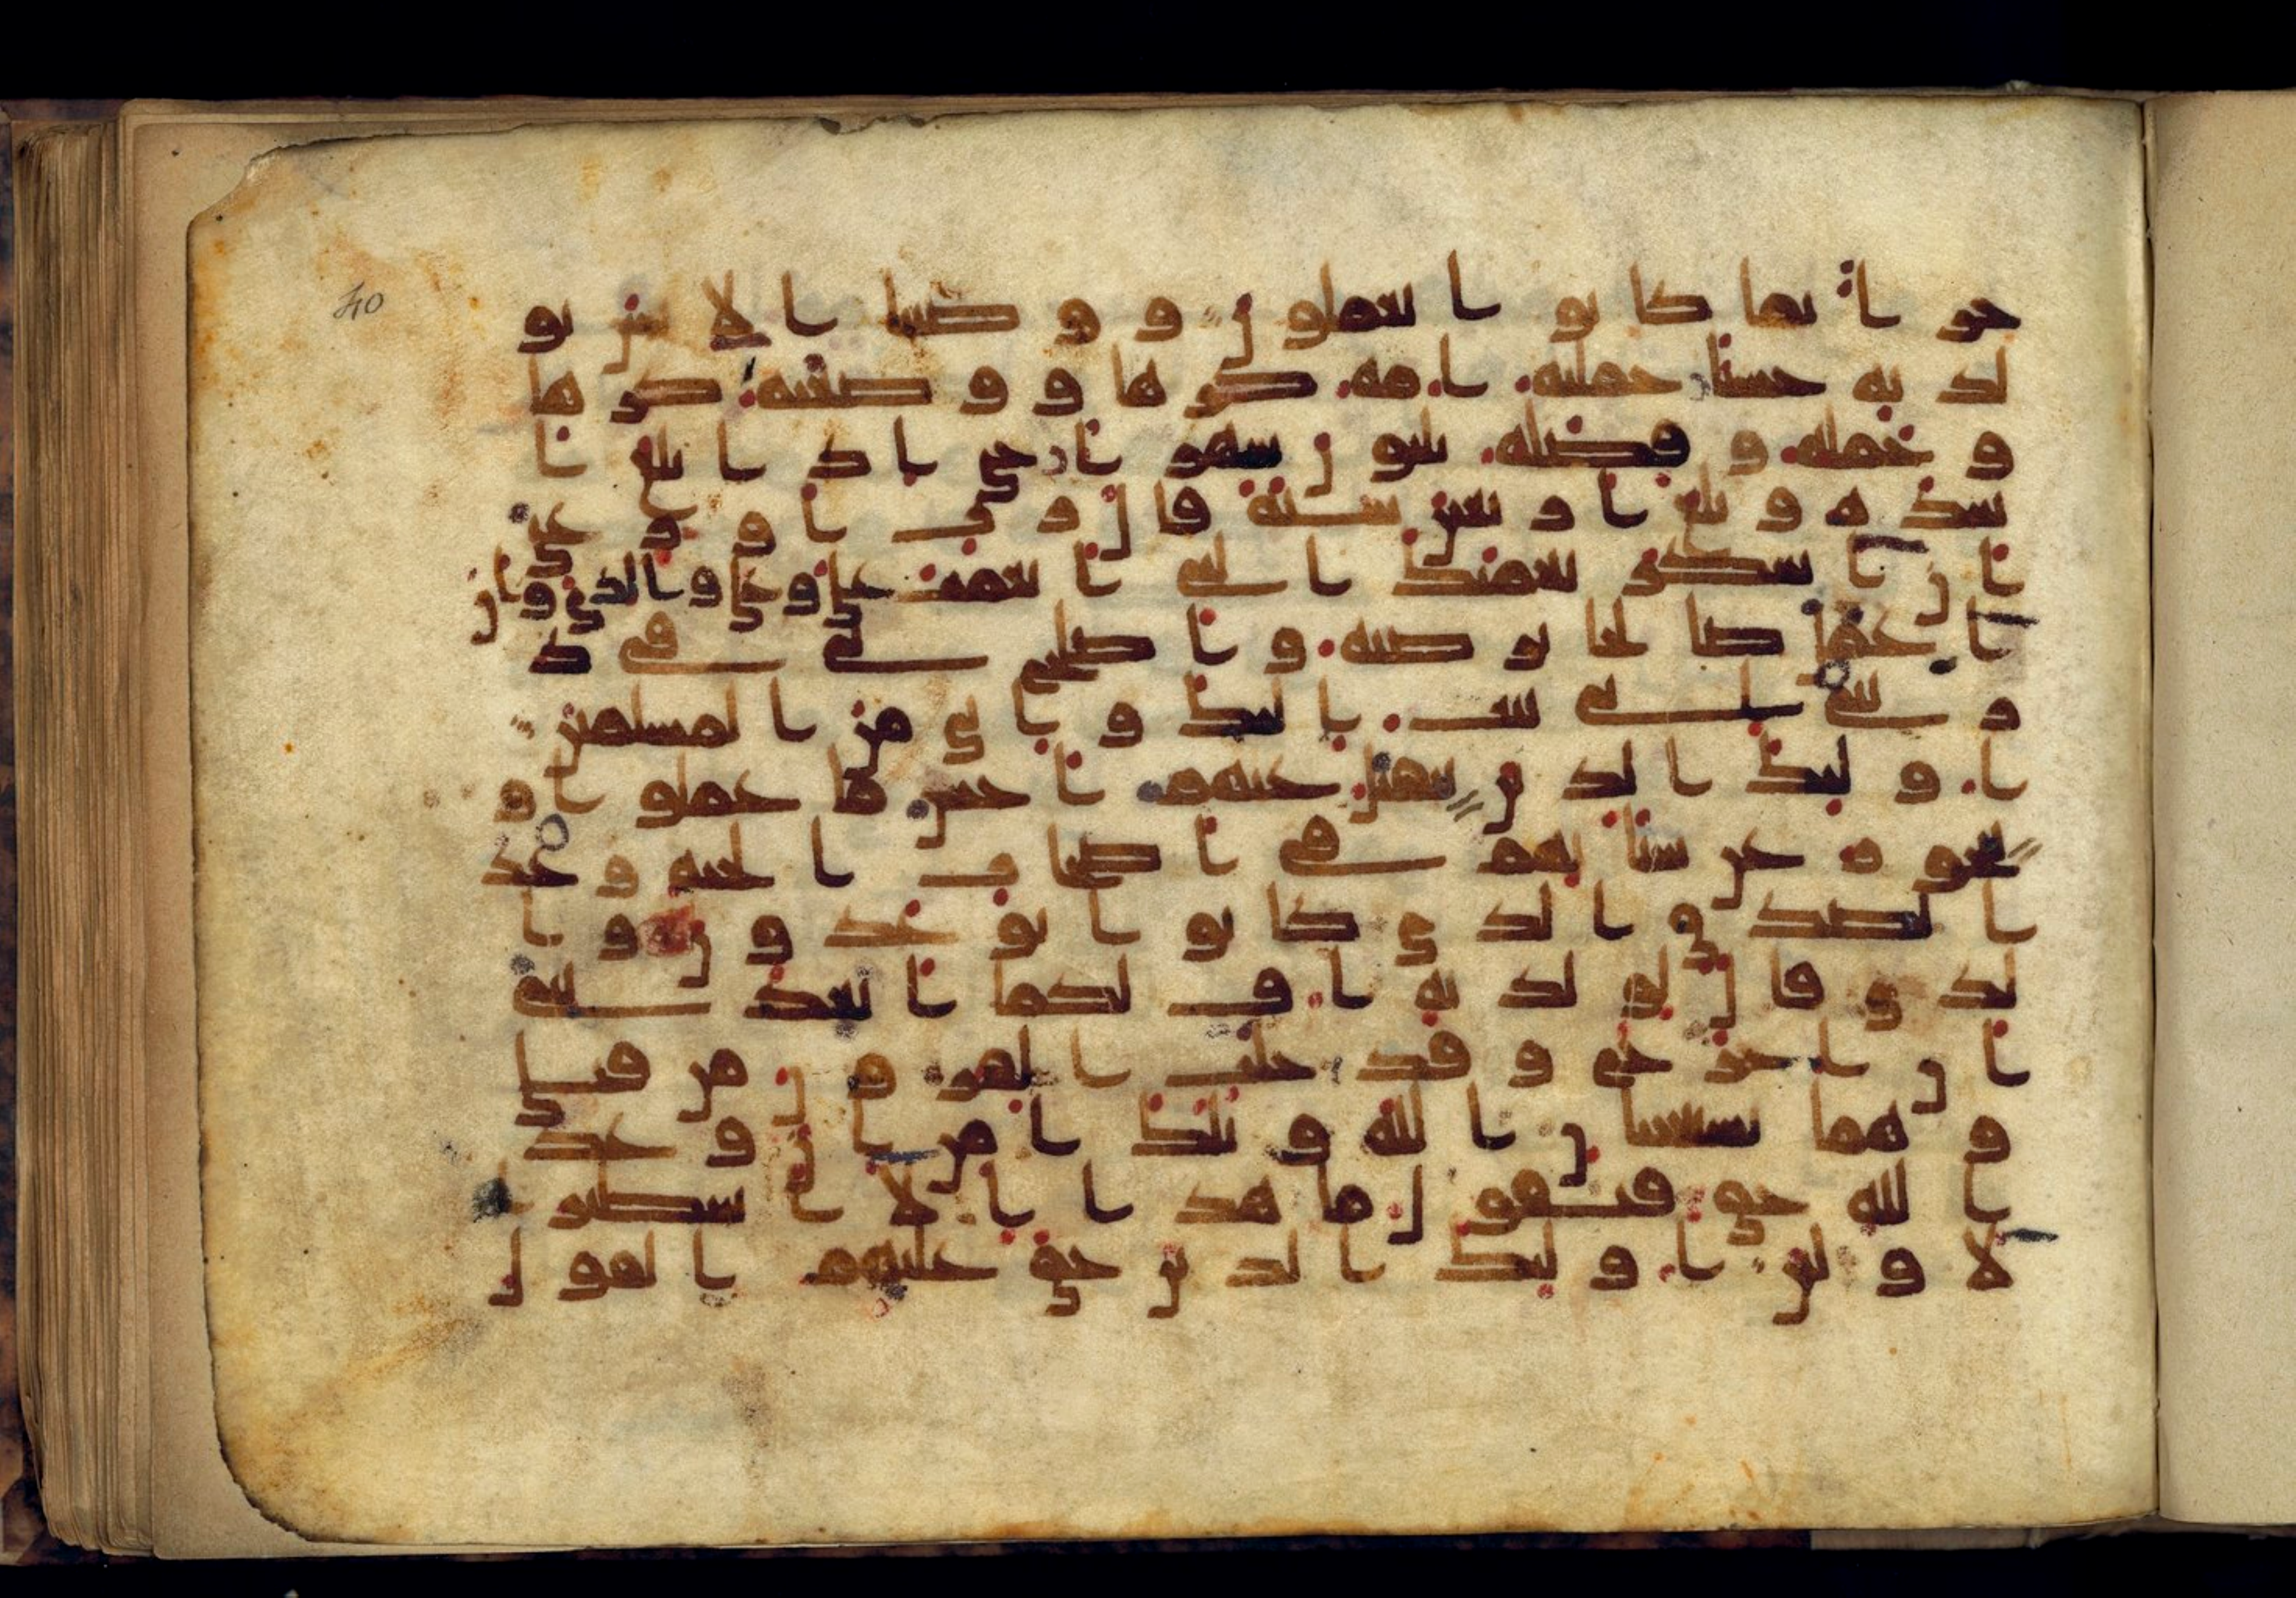 جزا بما كانوا يعملون ووصينا الانسن بو
لديه حسنا حملته امه كرها ووضعته كرها
وحمله وفصله ثلثون شهرا حتى اذا بلغ ا
شده وبلغ اربعين سنة قال رب اوزعني
ان اشكر نعمتك التي انعمت علي وعلى والدي وان
اعمل صالحا ترضيه واصلح لي في ذ
ريتي اني تبت اليك واني من المسلمين
اولئك الذين يتقبل عنهم احسن ما عملوا و
يتجوز عن سياتهم في اصحاب الجنة وعد
الصدق الذي كانوا يوعدون وا
لذي قال لولديه اف لكما اتعدانني
ان اخرج وقد خلت القرون من قبلي
وهما يستغيثان الله ويلك امن ان وعد
الله حق فيقول ما هذا الا اسطير ا
لاولين اولئك الذين حق عليهم القول
40